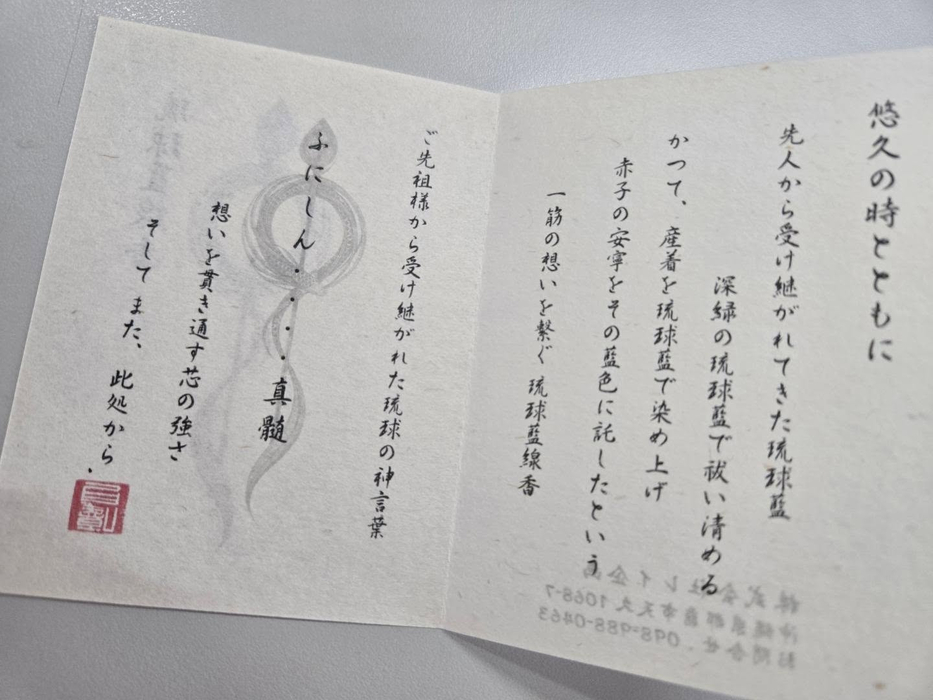 悠久の時とともに
先人から受け継がれてきた琉球藍
深緑の琉球藍で祓い清める
かつて、産着を琉球藍で染め上げ
赤子の安寧をその藍色に託したという
一筋の想いを繋ぐ 琉球藍線香
ご先祖様から受け継がれた琉球の神言葉
ふにしん・・・・真髄
想いを貫き通す芯の強さ
そして また、此処から.
株式会社レイ企画
沖縄県那覇市天久1068-7
お問合せ.098-988-0463
琉球